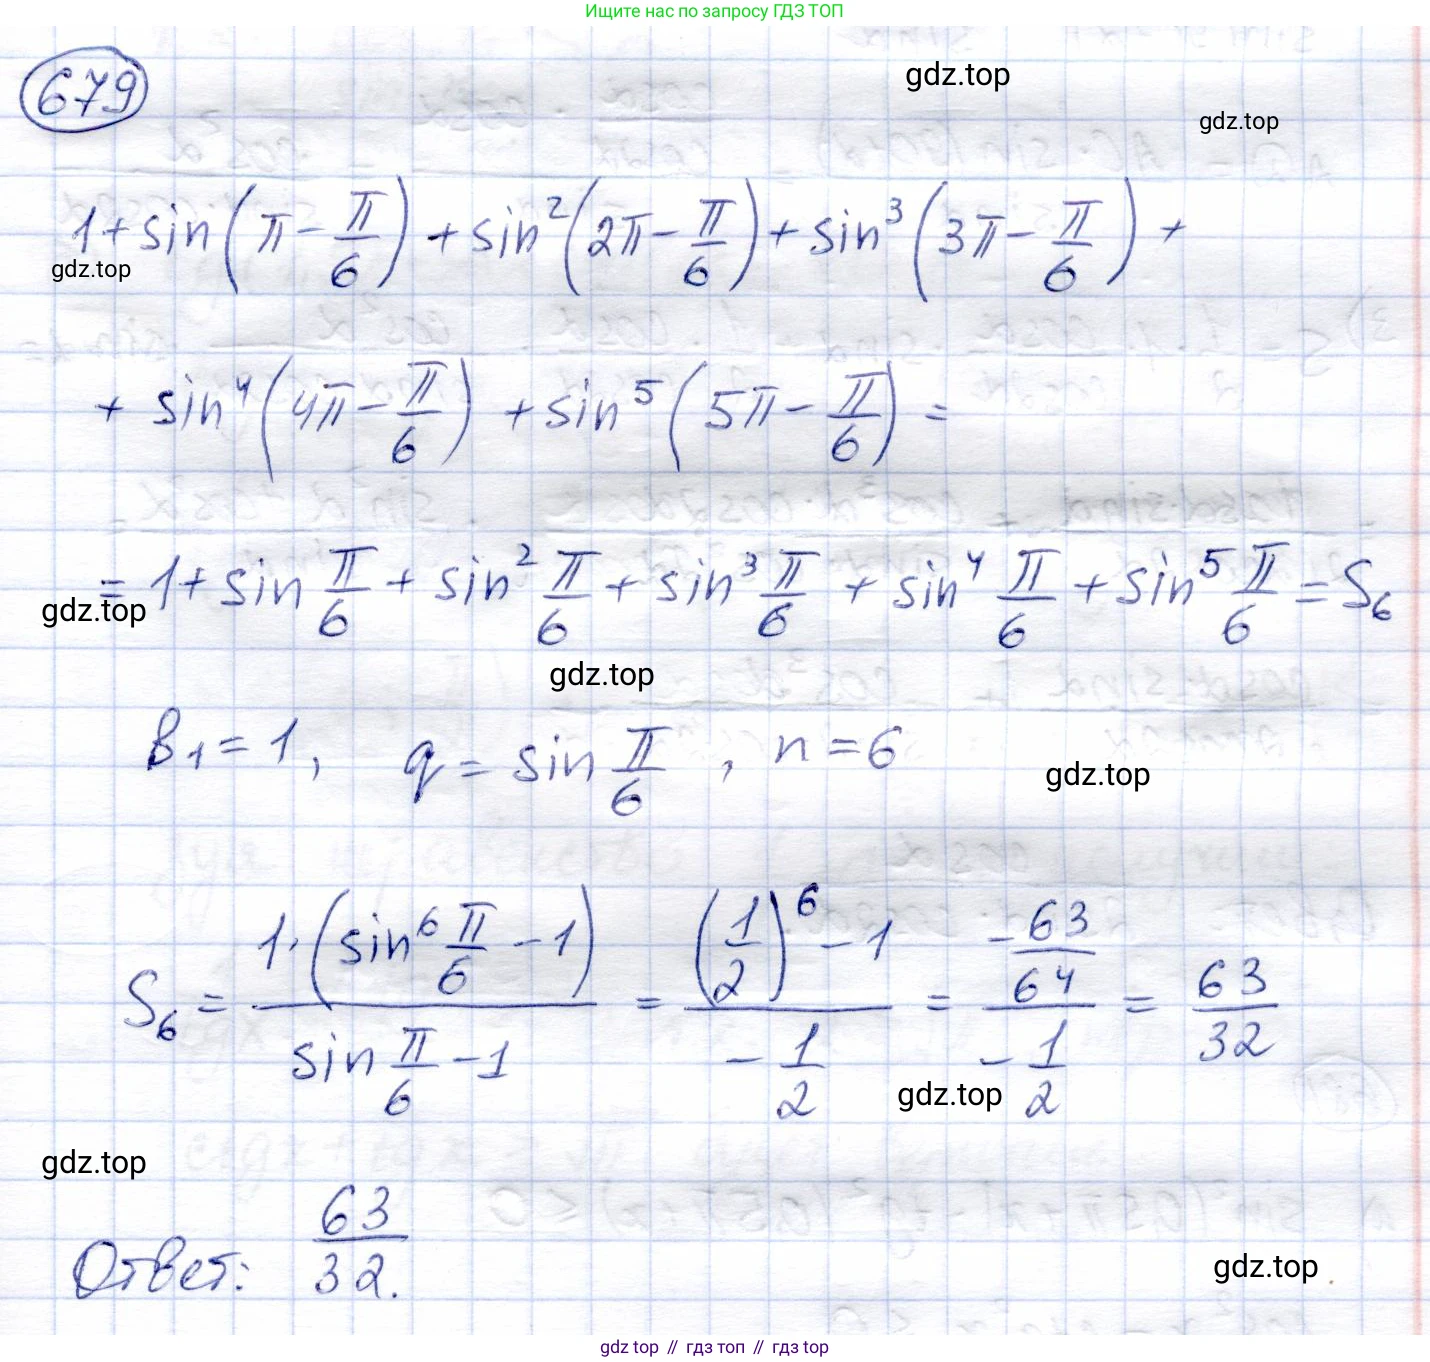 Ищите нас по запросу ГДЗ ТОП
679
gdz.top
gdz.top
1 + sin(π − π/6) + sin²(2π − π/6) + sin³(3π − π/6) +
gdz.top
+ sin⁴(4π − π/6) + sin⁵(5π − π/6) =
= 1 + sin π/6 + sin² π/6 + sin³ π/6 + sin⁴ π/6 + sin⁵ π/6 = S₆
gdz.top
gdz.top
b₁ = 1, q = sin π/6, n = 6
gdz.top
S₆ = 1·(sin⁶ π/6 − 1)/(sin π/6 − 1) = ((1/2)⁶ − 1)/(−1/2) = (−63/64)/(−1/2) = 63/32
gdz.top
gdz.top
Ответ: 63/32.
gdz.top
gdz top // гдз топ // гдз top